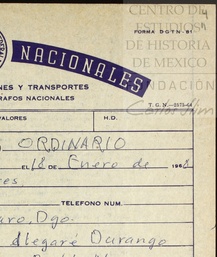 CENTRO DE
ESTUDIOS
DE HISTORIA
DE MEXICO
FUNDACIÓN
Carlos Slim
FORMA DGTN-81
NACIONALES
NES Y TRANSPORTES
RAFOS NACIONALES
T. G. N.—3173-64
VALORES H.D.
ORDINARIO
EL 18 DE Enero de 1968
TELEFONO NUM.
Dgo.
llegaré Durango